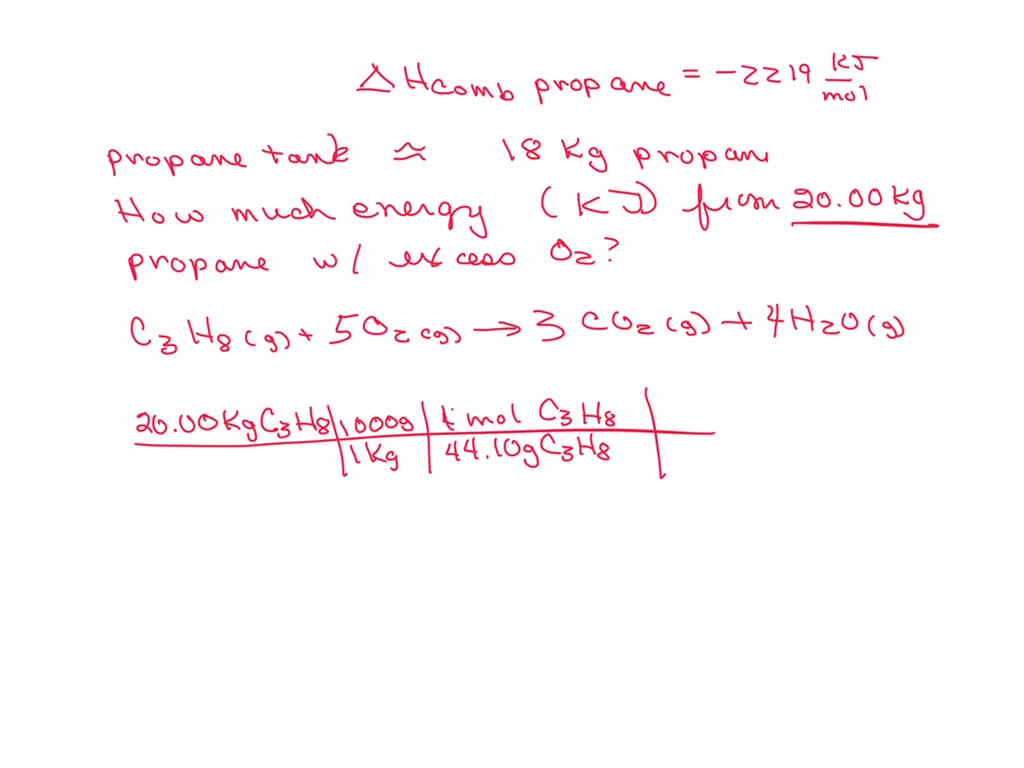 ΔHcomb propane = -2219 KJ/mol
propane tank ≈ 18 Kg propan
How much energy (KJ) from 20.00 Kg
propane w/ excess O2?
C3H8(g) + 5O2(g) → 3 CO2(g) + 4H2O(g)
20.00 Kg C3H8 | 1000g | 1 mol C3H8 |
1 Kg | 44.10g C3H8 |